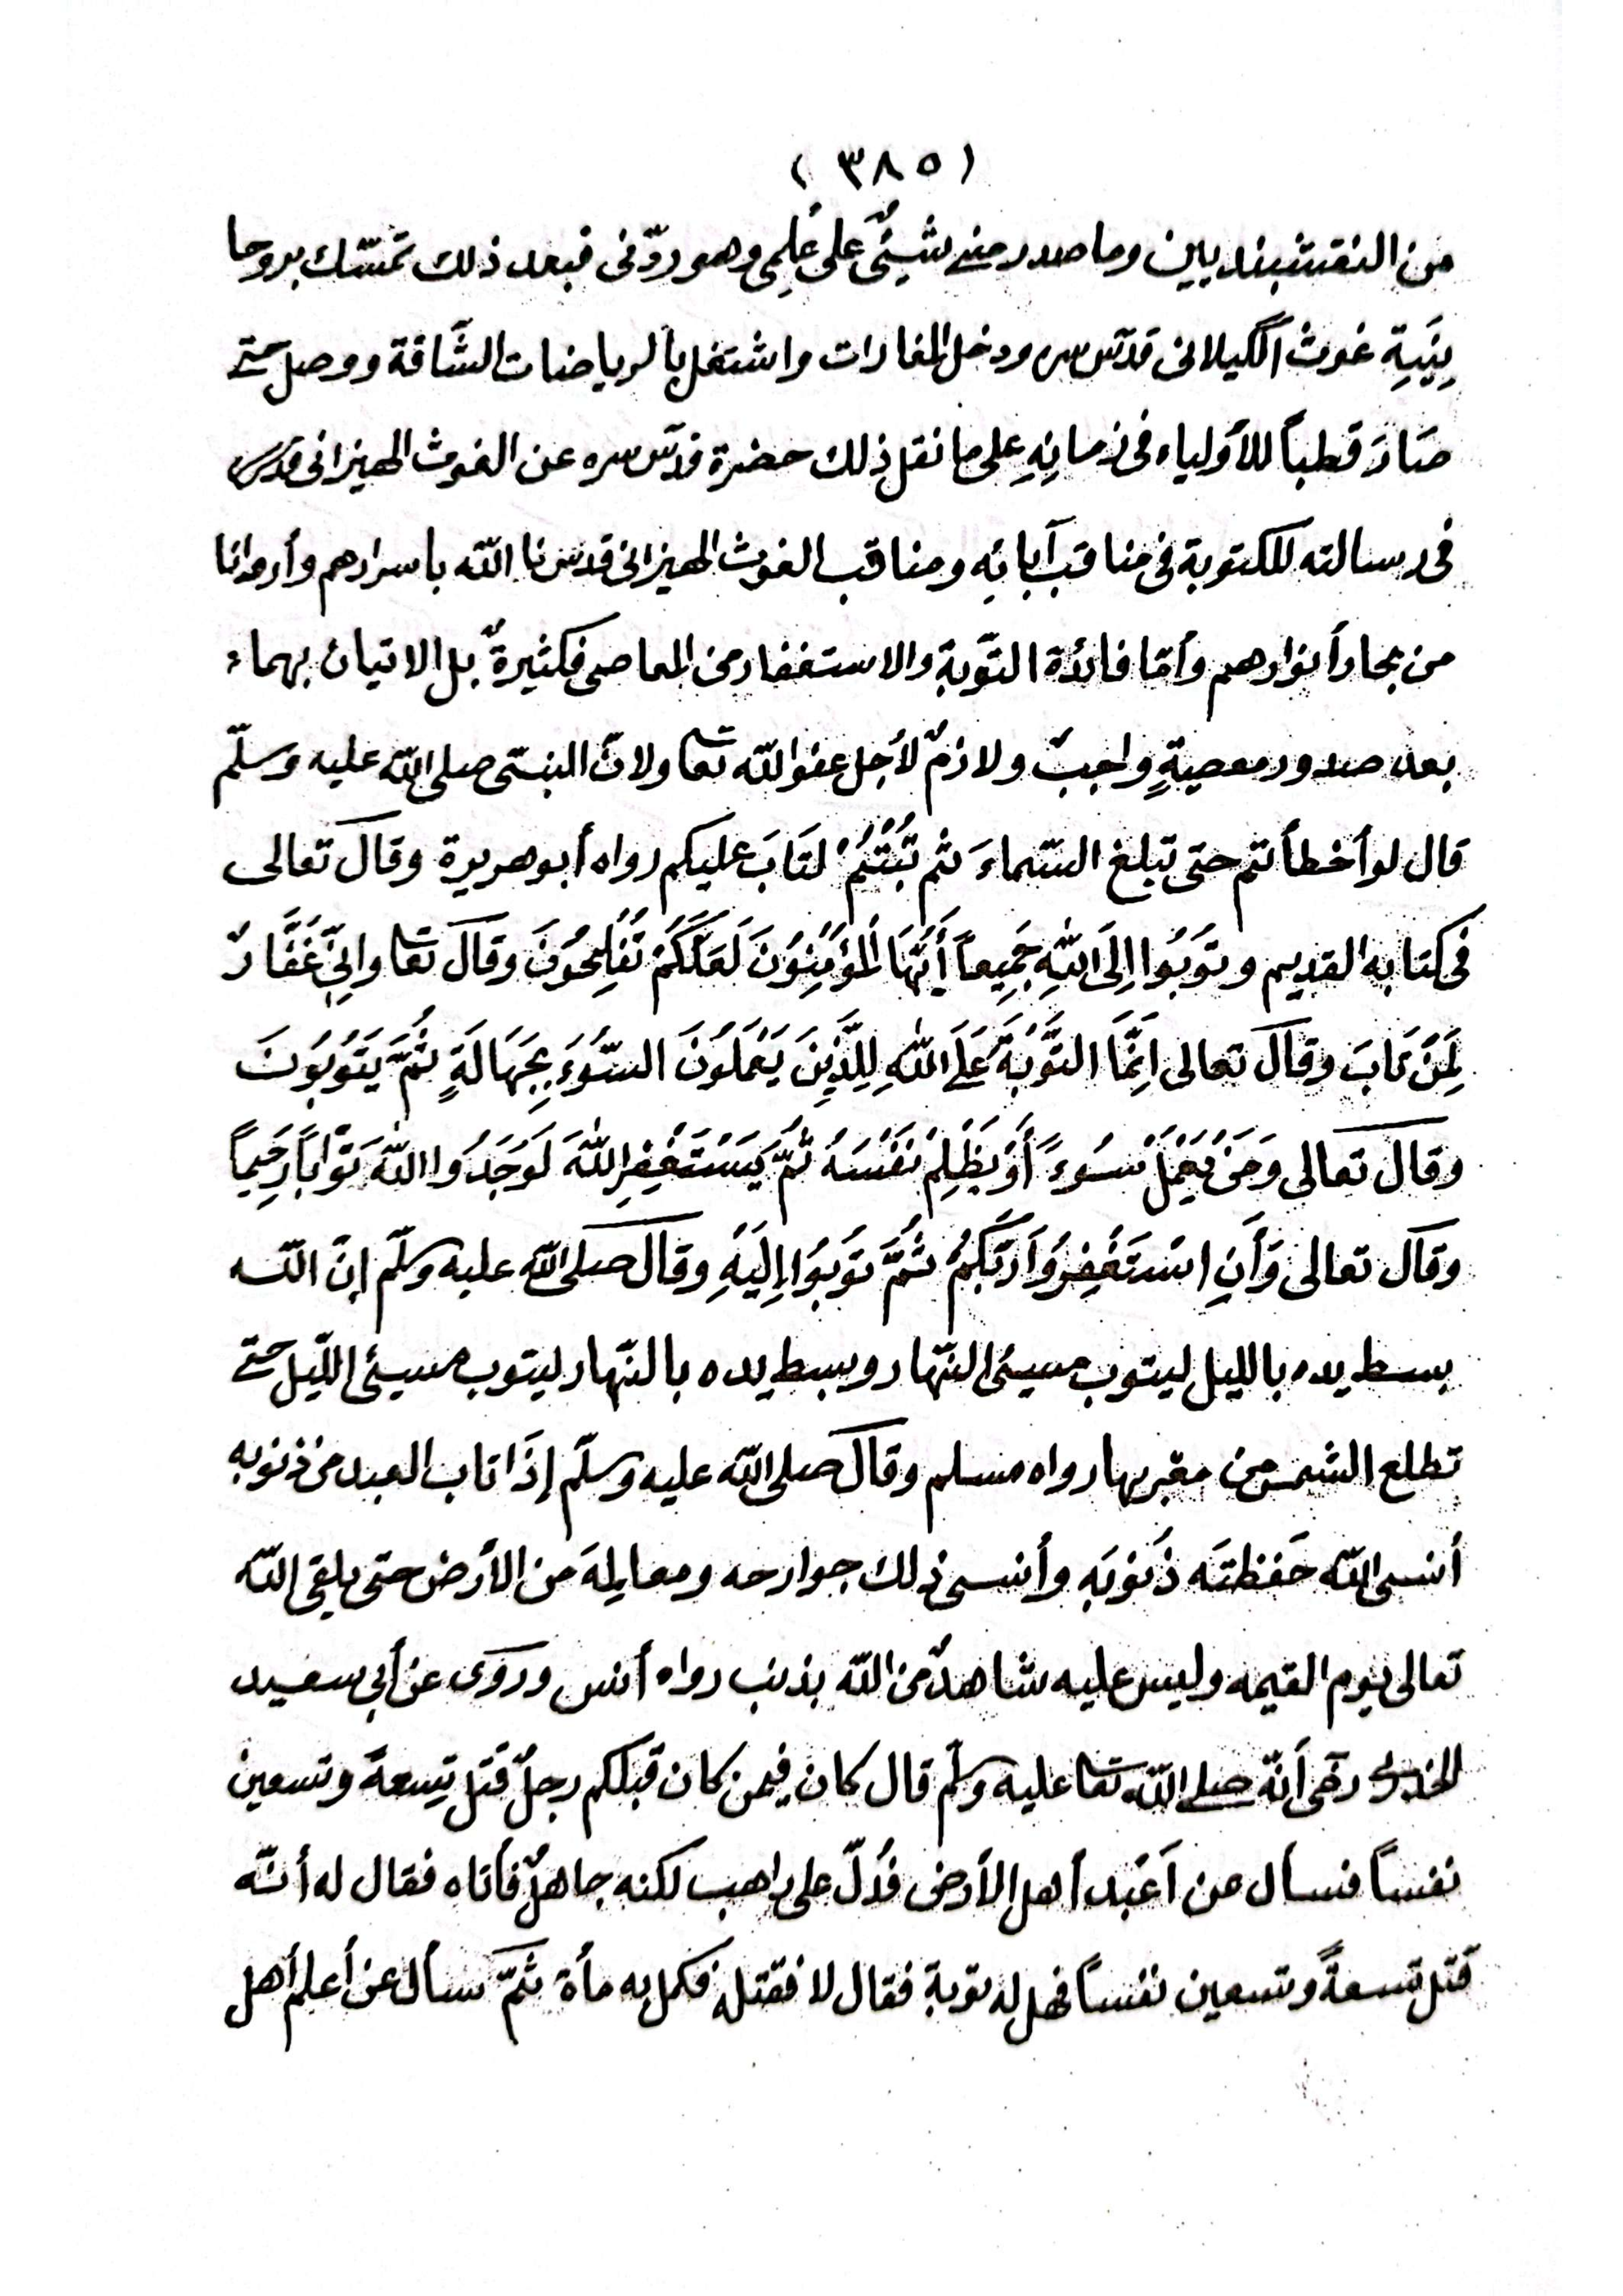 (٣٨٥)
من النقشبنديين وما صدر منى شيئٌ على عُلمِى وهو ردّنى فبعد ذلك تمسّك بروحا
نِيَةِ غوث الگيلانى قدّس سره ودخل المغارات واشتغل بالرياضات الشَّاقة ووصل حتى
صَارَ قطباً للأولياء فى زمانِهِ على ما نقل ذلك حضرة قدّس سره عن الغوث الهيزانى قدس
فى رسالته المكتوبة فى مناقب آبائِه ومناقب الغوث الهيزانى قدسنا الله باسرارهم وأروانا
من بحار أنوارهم وأمّا فائدة التّوبةِ والاستغفار من المعاصى فكثيرةٌ بل الاتيان بهماء
بعد صدور معصيةٍ واجبٌ ولازمٌ لأجل عفو الله تعا ولانّ النبىّ صلى الله عليه وسلّم
قال لو أخطأتم حتى تبلغ السّماءَ ثم تُبْتُمْ لتَابَ عليكم رواه أبوهريرة وقال تعالى
فى كتابه القديم وتُوبُوا اِلَى اللهِ جَمِيعاً أَيُّهَا الْمُؤْمِنُونَ لَعَلَّكُمْ تُفْلِحُونَ وقال تعا واِنِّى غَفَّارٌ
لِمَنْ تَابَ وقال تعالى اِنَّمَا التَّوْبَةُ عَلَى اللهِ لِلَّذِينَ يَعْمَلُونَ السُّوءَ بِجَهَالَةٍ ثُمَّ يَتُوبُونَ
وقال تعالى وَمَنْ يَعْمَلْ سُوءً أَوْ يَظْلِمْ نَفْسَهُ ثُمَّ يَسْتَغْفِرِ اللهَ لَوَجَدُوا اللهَ تَوَّاباً رَحِيماً
وقال تعالى وَأَنِ اسْتَغْفِرُوا رَبَّكُمْ ثُمَّ تُوبُوا اِلَيْهِ وقال صلى الله عليه وسلّم إنّ الله
بسط يده بالليل ليتوب مسيئ النّهار ويبسط يده بالنّهار ليتوب مسيئ اللّيل حتى
تطلع الشمس من مغربها رواه مسلم وقال صلى الله عليه وسلّم إذَا تاب العبد من ذنوبه
أنسى الله حَفظتَه ذُنوبَه وأنسى ذلك جوارحه ومعالِمَه من الأرض حتى يلقى الله
تعالى يوم القيمه وليس عليه شاهدٌ من الله بذنب رواه أنس وروى عن أبى سعيد
الخدرى رضى أنّه صلى الله تعا عليه وسلّم قال كان فيمن كان قبلكم رجلٌ قتل تِسعةً وتسعين
نفساً فسأل عن أعبَد أهل الأرض فدُلّ على راهب لكنه جاهلٌ فأتاه فقال له أنّه
قتل تسعةً وتسعين نفساً فهل له توبة فقال لا فقتله فكمل به مأة ثمّ سأل عن أعلم أهل